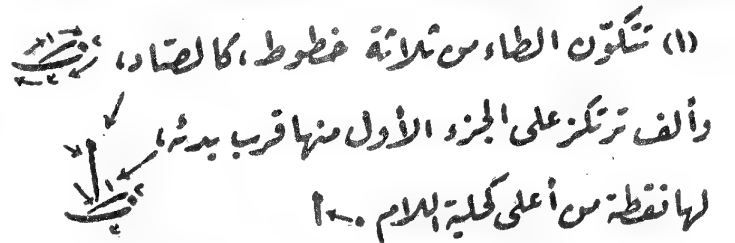 (١) تتكوّن الطاء من ثلاثة خطوط، كالصّاد،
وألف ترتكز على الجزء الأول منها قرب بدئه،
لها نقطة من أعلى كحلية اللام